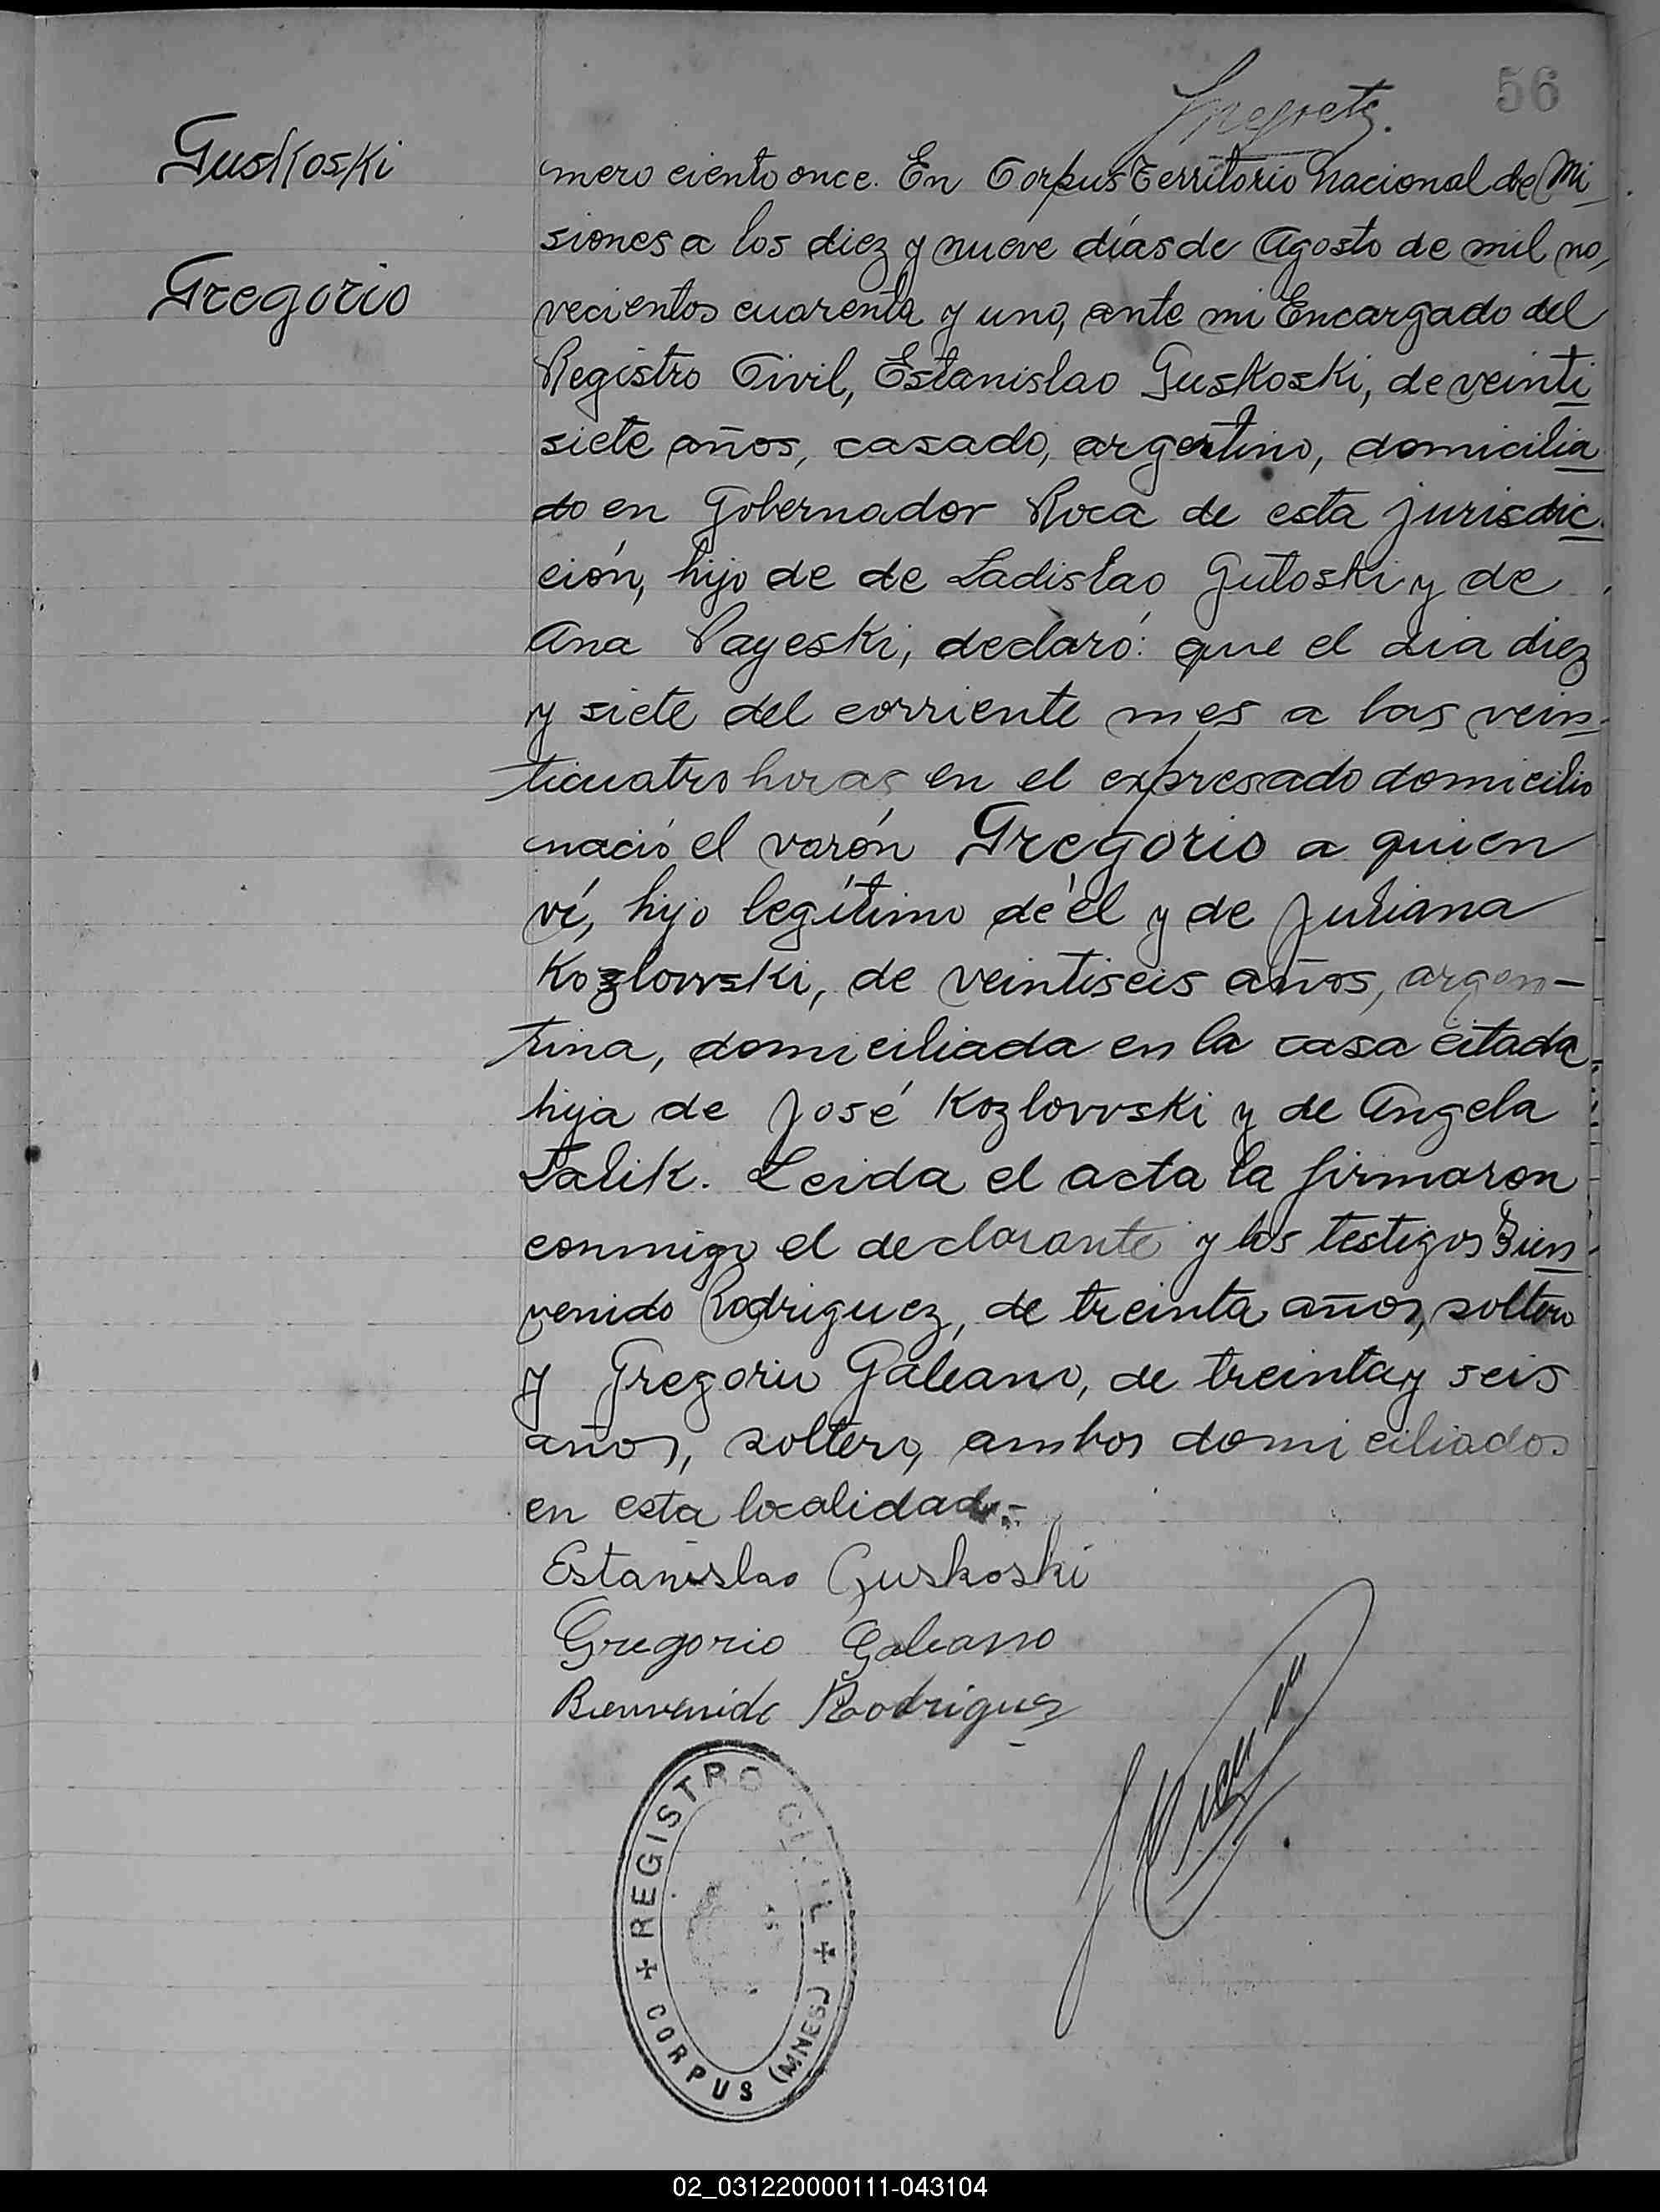 56
Guskoski
Gregorio
mero ciento once. En Corpus Territorio Nacional de Mi
siones a los diez y nueve días de Agosto de mil no,
vecientos cuarenta y uno, ante mi Encargado del
Registro Civil, Estanislao Guskoski, de veinti
siete años, casado, argentino, domicilia
do en Gobernador Roca de esta jurisdic
ción, hijo de de Ladislao Gutoski y de
Ana Payeski, declaró: que el dia diez
y siete del corriente mes a las vein
ticuatro horas en el expresado domicilio
nació el varón Gregorio a quien
ví, hijo legítimo de él y de Juliana
Kozlowski, de veintiseis años, argen-
tina, domiciliada en la casa citada
hija de José Kozlowski y de Angela
Talik. Leida el acta la firmaron
conmigo el declarante y los testigos Bien
venido Rodriguez, de treinta años, soltero
y Gregorio Galeano, de treinta y seis
años, soltero, ambos domiciliados
en esta localidad.-
Estanislao Guskoski
Gregorio Galeano
Bienvenido Rodriguez
REGISTRO CIVIL
CORPUS (MNES.)
02_031220000111-043104